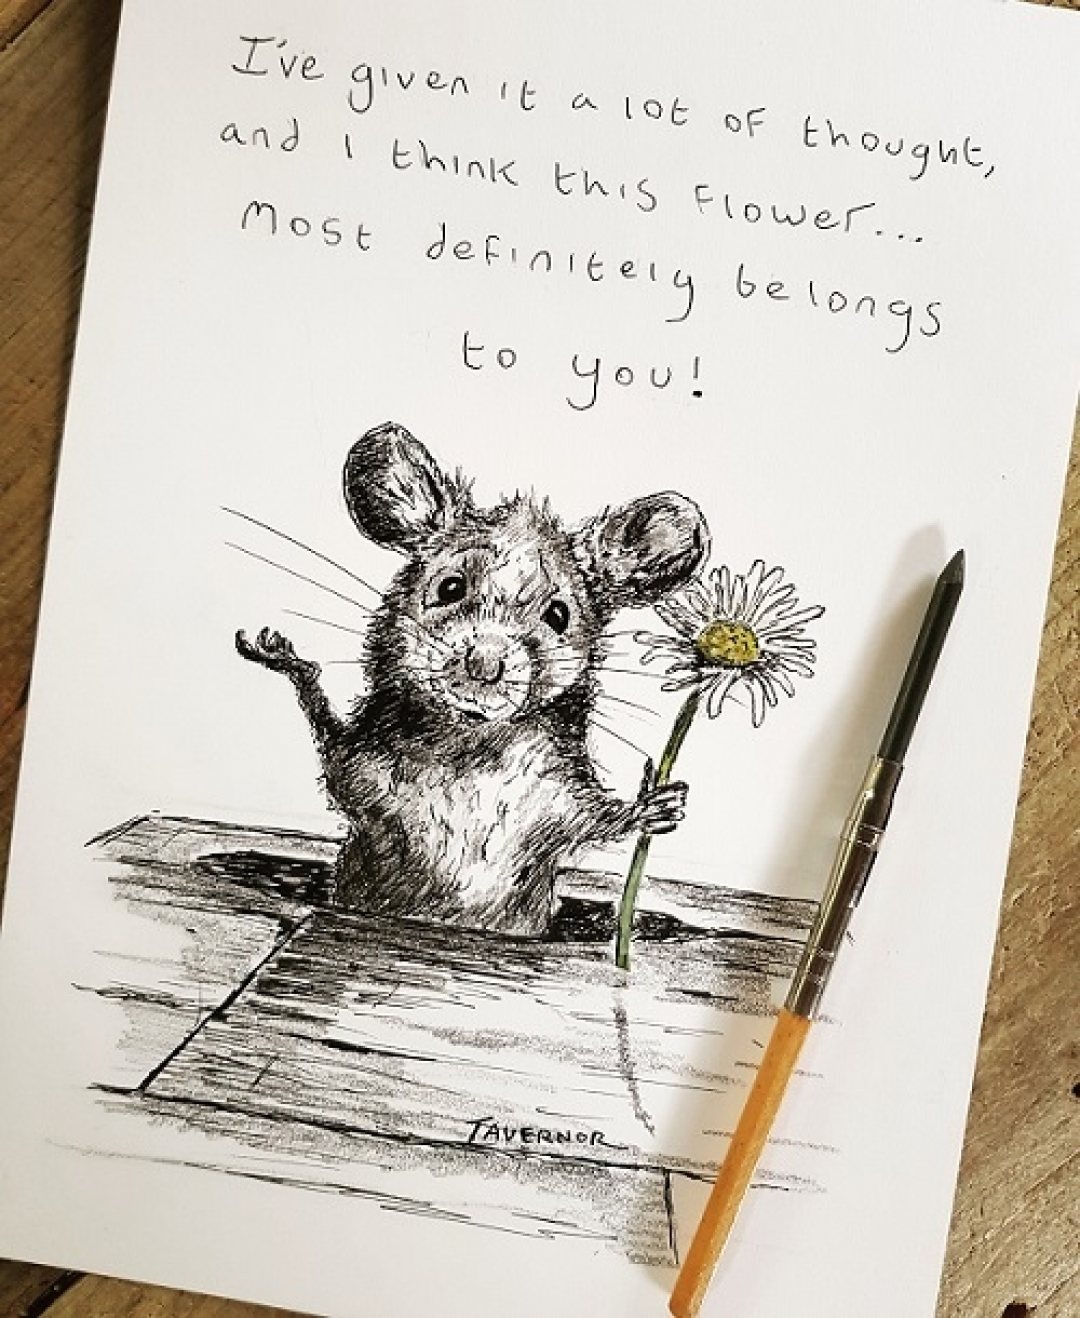 I've given it a lot of thought,
and I think this flower...
Most definitely belongs
to you!
TAVERNOR